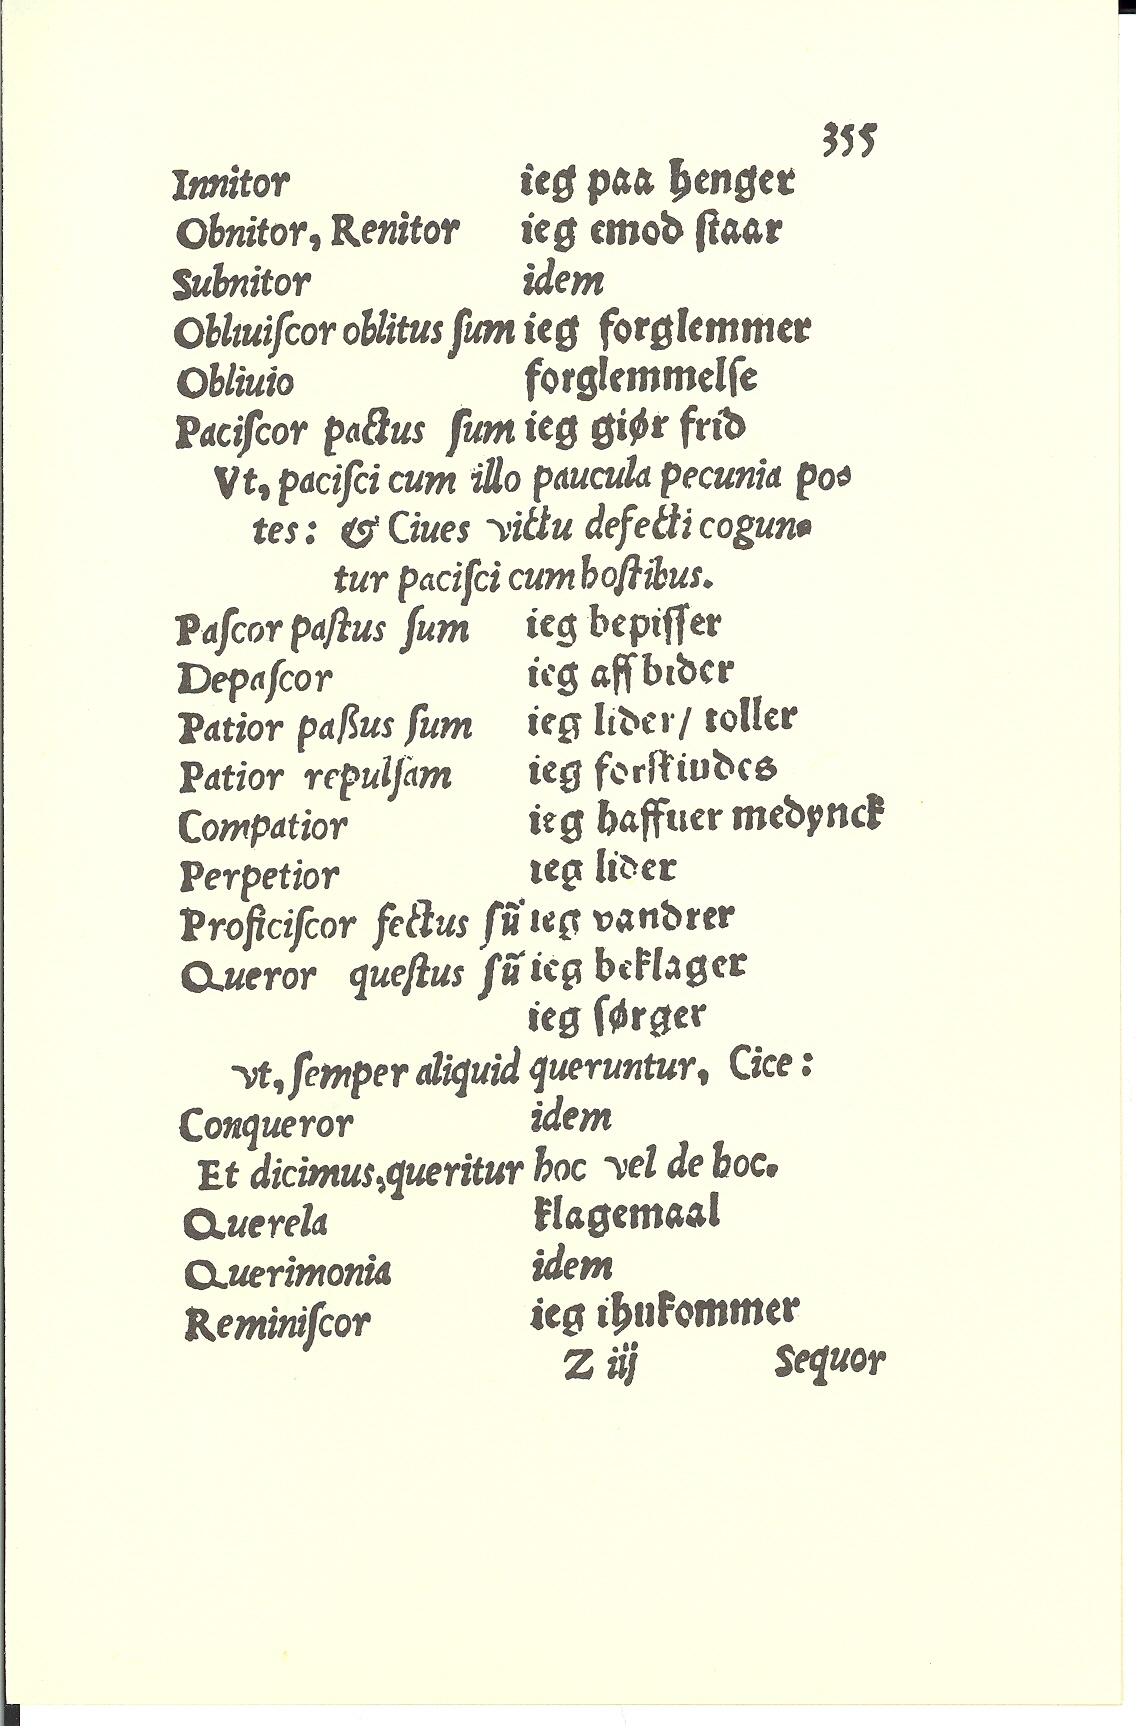 355
Innitor ieg paa henger
Obnitor, Renitor ieg emod ſtaar
Subnitor idem
Obliuiſcor oblitus ſum ieg forglemmer
Obliuio forglemmelſe
Paciſcor pactus ſum ieg giør frid
Vt, paciſci cum illo paucula pecunia po-
tes: & Ciues victu defecti cogun-
tur paciſci cum hoſtibus.
Paſcor paſtus ſum ieg bepiſſer
Depaſcor ieg aff bider
Patior paßus ſum ieg lider/ toller
Patior repulſam ieg forſkiudes
Compatior ieg haffuer medynck
Perpetior ieg lider
Proficiſcor fectus ſũ ieg vandrer
Queror queſtus ſũ ieg beklager
ieg ſørger
vt, ſemper aliquid queruntur, Cice:
Conqueror idem
Et dicimus, queritur hoc vel de hoc.
Querela klagemaal
Querimonia idem
Reminiſcor ieg ihukommer
Z iij Sequor